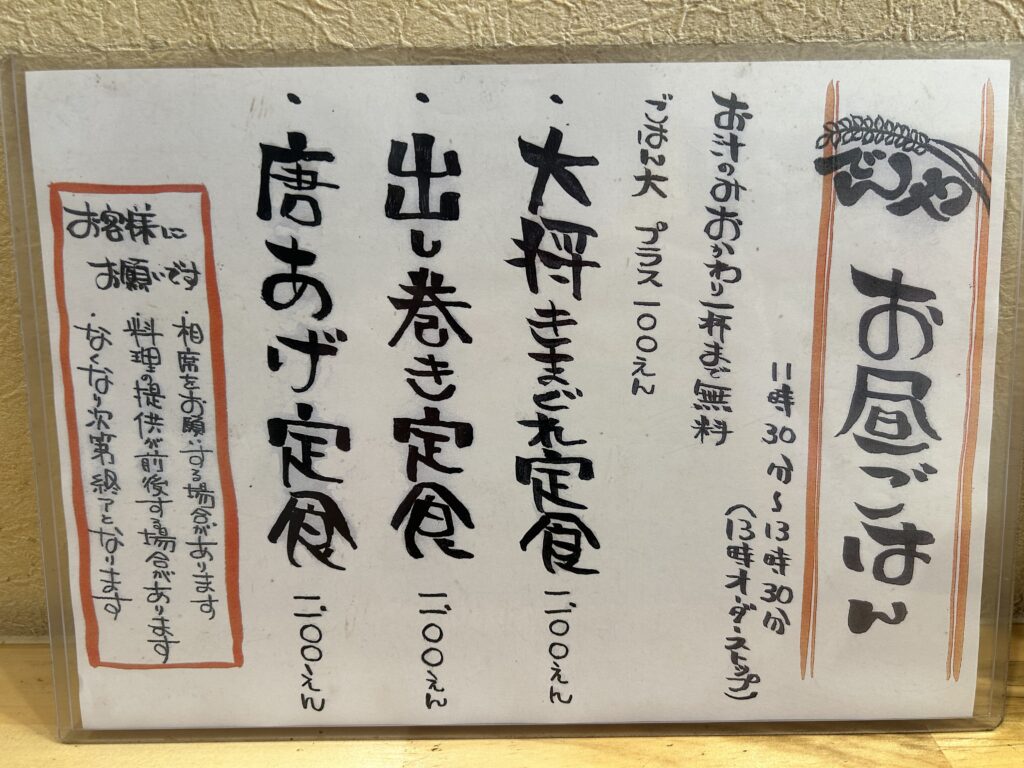 でんつや
お昼ごはん
11時30分~13時30分
(13時オーダーストップ)
お汁のみおかわり一杯まで無料
ごはん大 プラス一〇〇えん
・大将きまぐれ定食 一、一〇〇えん
・出し巻き定食 一、一〇〇えん
・唐あげ定食 一、一〇〇えん
お客様に
お願いです
・相席をお願いする場合があります
・料理の提供が前後する場合があります
・なくなり次第終了となります